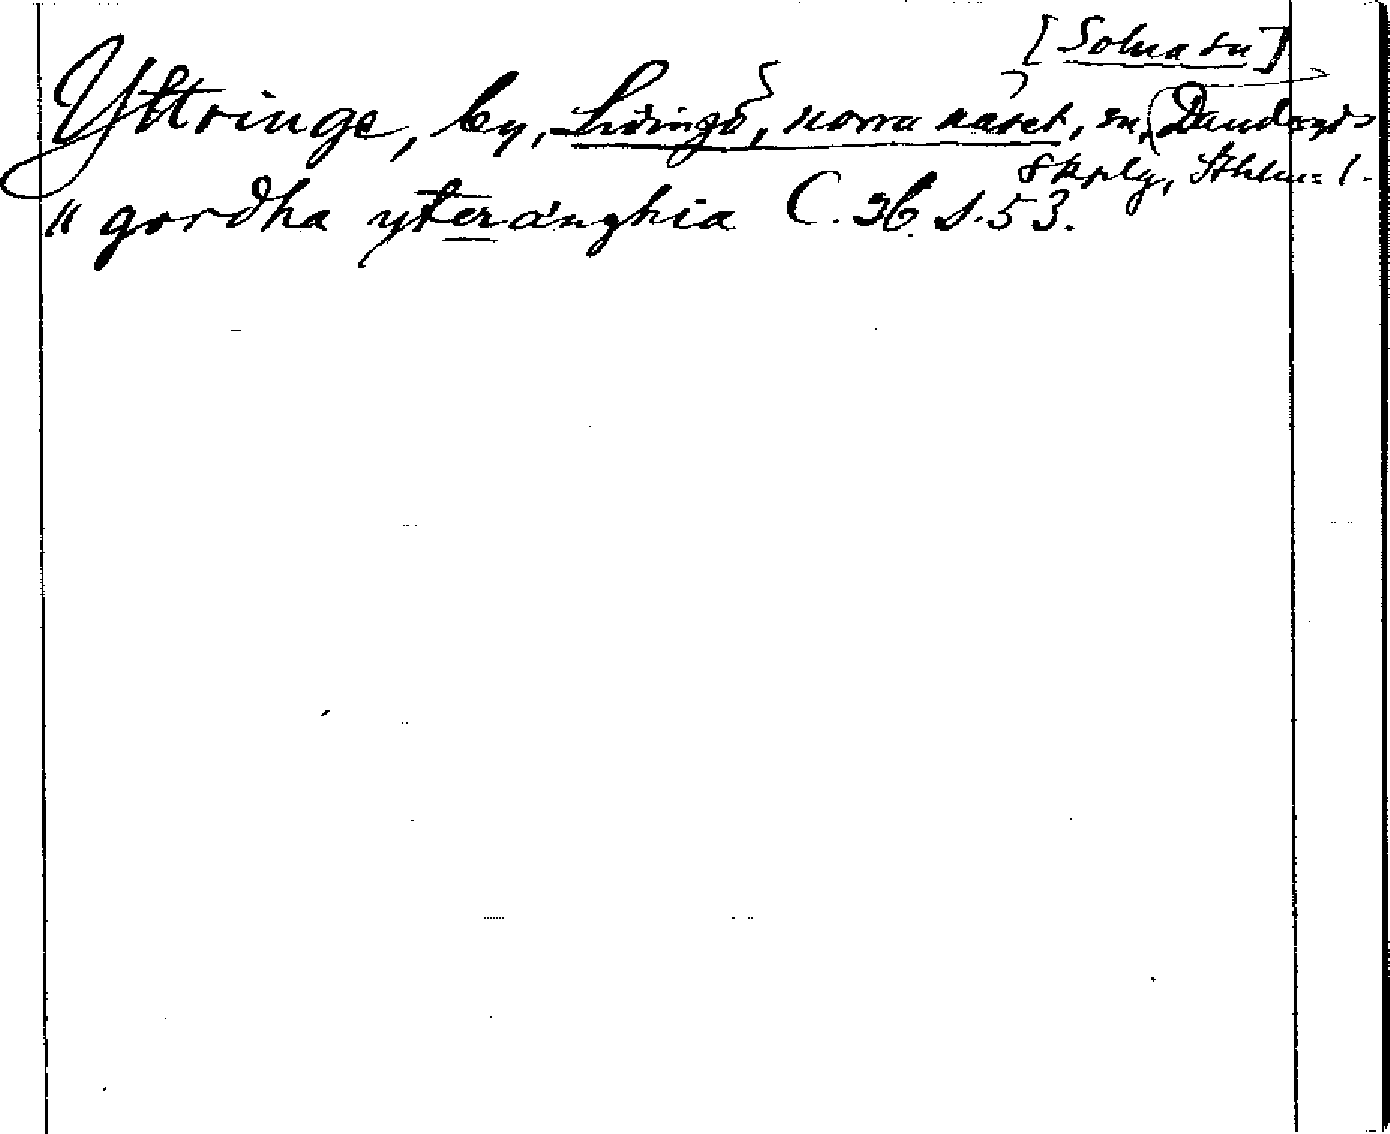 [Solna sn]
Yttringe, by, Lidingö, norra näset, sn, Danderyds
skplg, Sthlms l.
" gordha yteränghia C. 26. s. 53.